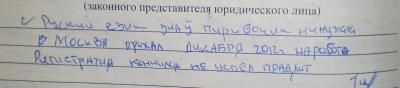 (законного представителя юридического лица)
✓ Руский език знаў пиривочик нинужна
В Москва приехал дикабря 2012г на работа
Регистратия кончился не успел прадлит